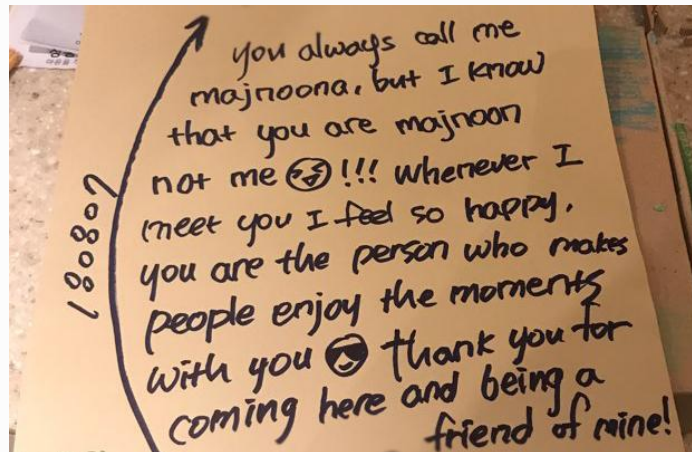 you always call me
majnoona, but I know
that you are majnoon
not me 😆 !!! whenever I
meet you I feel so happy.
you are the person who makes
people enjoy the moments
with you 😎 thank you for
coming here and being a
friend of mine!
180807